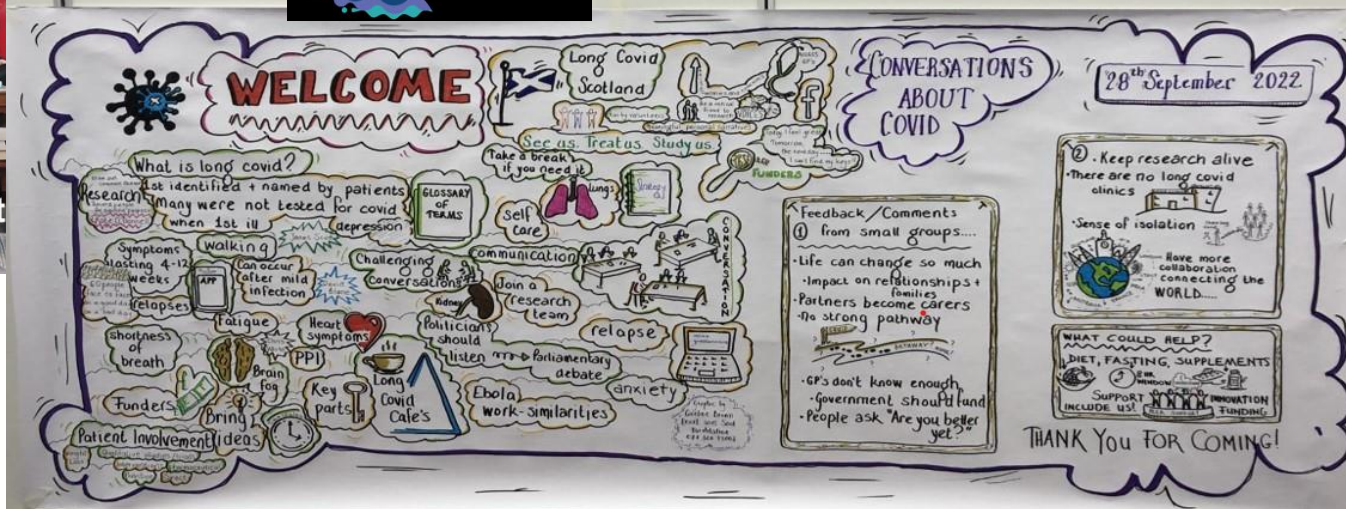 WELCOME
Long Covid
Scotland
See us. Treat us. Study us
CONVERSATIONS
ABOUT
COVID
28th September 2022
What is long covid?
1st identified + named by patients
many were not tested for covid
when 1st ill
Research
depression
GLOSSARY
OF
TERMS
Take a break
if you need it
lungs
Strategy
FUNDERS
Self
care
walking
Symptoms
lasting 4-12
weeks
relapses
APP
Can occur
after mild
infection
Challenging
Conversations
communication
CONVERSATION
Kidney
Join a
research
team
shortness
of
breath
Fatigue
Heart
symptoms
Politicians
should
listen
Parliamentary
debate
relapse
PPI
Brain
fog
Key
parts
Long
Covid
Cafe's
Ebola
work-similarities
anxiety
Funders
Bring
ideas
Patient Involvement
Feedback/Comments
1 from small groups....
Life can change so much
Impact on relationships +
families
Partners become carers
No strong pathway
PATHWAY?
GP's don't know enough
Government should fund
People ask "Are you better
yet?"
2. Keep research alive
There are no long covid
clinics
Sense of isolation
Have more
collaboration
connecting the
WORLD....
WHAT COULD HELP?
DIET, FASTING, SUPPLEMENTS
8 HR
WINDOW
SUPPORT
INCLUDE US!
INNOVATION
FUNDING
THANK YOU FOR COMING!